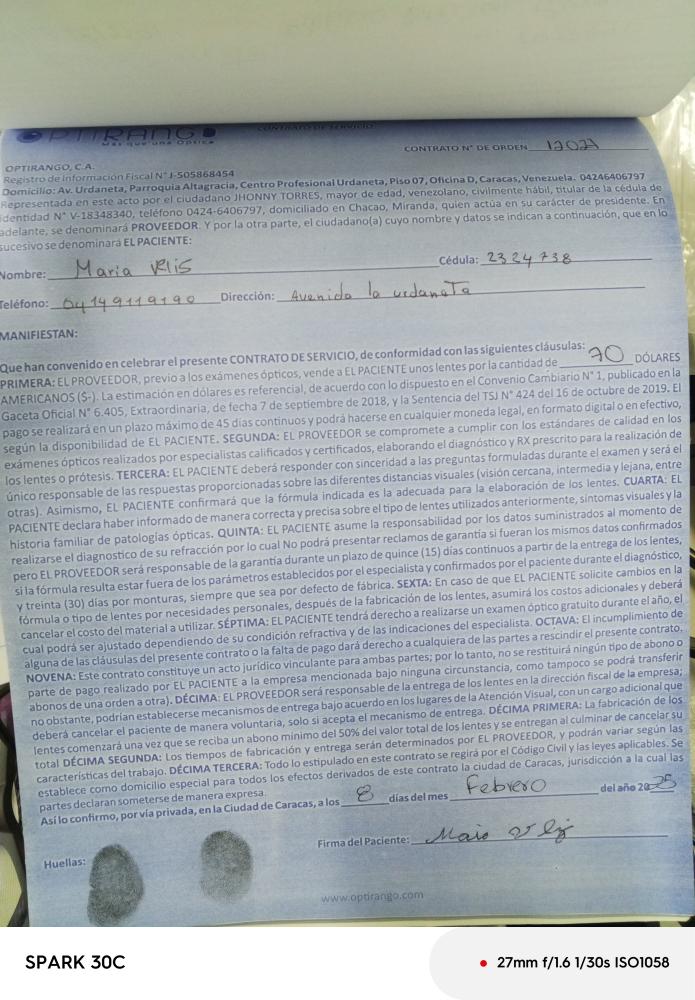 OPTIRANGO
Más que una Óptica
CONTRATO DE SERVICIO
CONTRATO N° DE ORDEN
OPTIRANGO, C.A.
Registro de Información Fiscal N° J-505868454
Domicilio: Av. Urdaneta, Parroquia Altagracia, Centro Profesional Urdaneta, Piso 07, Oficina D, Caracas, Venezuela. 04246406797
Representada en este acto por el ciudadano JHONNY TORRES, mayor de edad, venezolano, civilmente hábil, titular de la cédula de
identidad N° V-18348340, teléfono 0424-6406797, domiciliado en Chacao, Miranda, quien actúa en su carácter de presidente. En
adelante, se denominará PROVEEDOR. Y por la otra parte, el ciudadano(a) cuyo nombre y datos se indican a continuación, que en lo
sucesivo se denominará EL PACIENTE:
Nombre: Maria Velis Cédula: 2324738
Teléfono: 04149119190 Dirección: Avenida la urdaneta
MANIFIESTAN:
Que han convenido en celebrar el presente CONTRATO DE SERVICIO, de conformidad con las siguientes cláusulas:
PRIMERA: EL PROVEEDOR, previo a los exámenes ópticos, vende a EL PACIENTE unos lentes por la cantidad de 70 DÓLARES
AMERICANOS ($-). La estimación en dólares es referencial, de acuerdo con lo dispuesto en el Convenio Cambiario N° 1, publicado en la
Gaceta Oficial N° 6.405, Extraordinaria, de fecha 7 de septiembre de 2018, y la Sentencia del TSJ N° 424 del 16 de octubre de 2019. El
pago se realizará en un plazo máximo de 45 días continuos y podrá hacerse en cualquier moneda legal, en formato digital o en efectivo,
según la disponibilidad de EL PACIENTE. SEGUNDA: EL PROVEEDOR se compromete a cumplir con los estándares de calidad en los
exámenes ópticos realizados por especialistas calificados y certificados, elaborando el diagnóstico y RX prescrito para la realización de
los lentes o prótesis. TERCERA: EL PACIENTE deberá responder con sinceridad a las preguntas formuladas durante el examen y será el
único responsable de las respuestas proporcionadas sobre las diferentes distancias visuales (visión cercana, intermedia y lejana, entre
otras). Asimismo, EL PACIENTE confirmará que la fórmula indicada es la adecuada para la elaboración de los lentes. CUARTA: EL
PACIENTE declara haber informado de manera correcta y precisa sobre el tipo de lentes utilizados anteriormente, síntomas visuales y la
historia familiar de patologías ópticas. QUINTA: EL PACIENTE asume la responsabilidad por los datos suministrados al momento de
realizarse el diagnostico de su refracción por lo cual No podrá presentar reclamos de garantía si fueran los mismos datos confirmados
pero EL PROVEEDOR será responsable de la garantía durante un plazo de quince (15) días continuos a partir de la entrega de los lentes,
si la fórmula resulta estar fuera de los parámetros establecidos por el especialista y confirmados por el paciente durante el diagnóstico,
y treinta (30) días por monturas, siempre que sea por defecto de fábrica. SEXTA: En caso de que EL PACIENTE solicite cambios en la
fórmula o tipo de lentes por necesidades personales, después de la fabricación de los lentes, asumirá los costos adicionales y deberá
cancelar el costo del material a utilizar. SÉPTIMA: EL PACIENTE tendrá derecho a realizarse un examen óptico gratuito durante el año, el
cual podrá ser ajustado dependiendo de su condición refractiva y de las indicaciones del especialista. OCTAVA: El incumplimiento de
alguna de las cláusulas del presente contrato o la falta de pago dará derecho a cualquiera de las partes a rescindir el presente contrato.
NOVENA: Este contrato constituye un acto jurídico vinculante para ambas partes; por lo tanto, no se restituirá ningún tipo de abono o
parte de pago realizado por EL PACIENTE a la empresa mencionada bajo ninguna circunstancia, como tampoco se podrá transferir
abonos de una orden a otra). DÉCIMA: EL PROVEEDOR será responsable de la entrega de los lentes en la dirección fiscal de la empresa;
no obstante, podrían establecerse mecanismos de entrega bajo acuerdo en los lugares de la Atención Visual, con un cargo adicional que
deberá cancelar el paciente de manera voluntaria, solo si acepta el mecanismo de entrega. DÉCIMA PRIMERA: La fabricación de los
lentes comenzará una vez que se reciba un abono mínimo del 50% del valor total de los lentes y se entregan al culminar de cancelar su
total DÉCIMA SEGUNDA: Los tiempos de fabricación y entrega serán determinados por EL PROVEEDOR, y podrán variar según las
características del trabajo. DÉCIMA TERCERA: Todo lo estipulado en este contrato se regirá por el Código Civil y las leyes aplicables. Se
establece como domicilio especial para todos los efectos derivados de este contrato la ciudad de Caracas, jurisdicción a la cual las
partes declaran someterse de manera expresa.
Así lo confirmo, por vía privada, en la Ciudad de Caracas, a los 8 días del mes Febrero del año 2025
Firma del Paciente:
Huellas:
www.optirango.com
SPARK 30C
27mm f/1.6 1/30s ISO1058